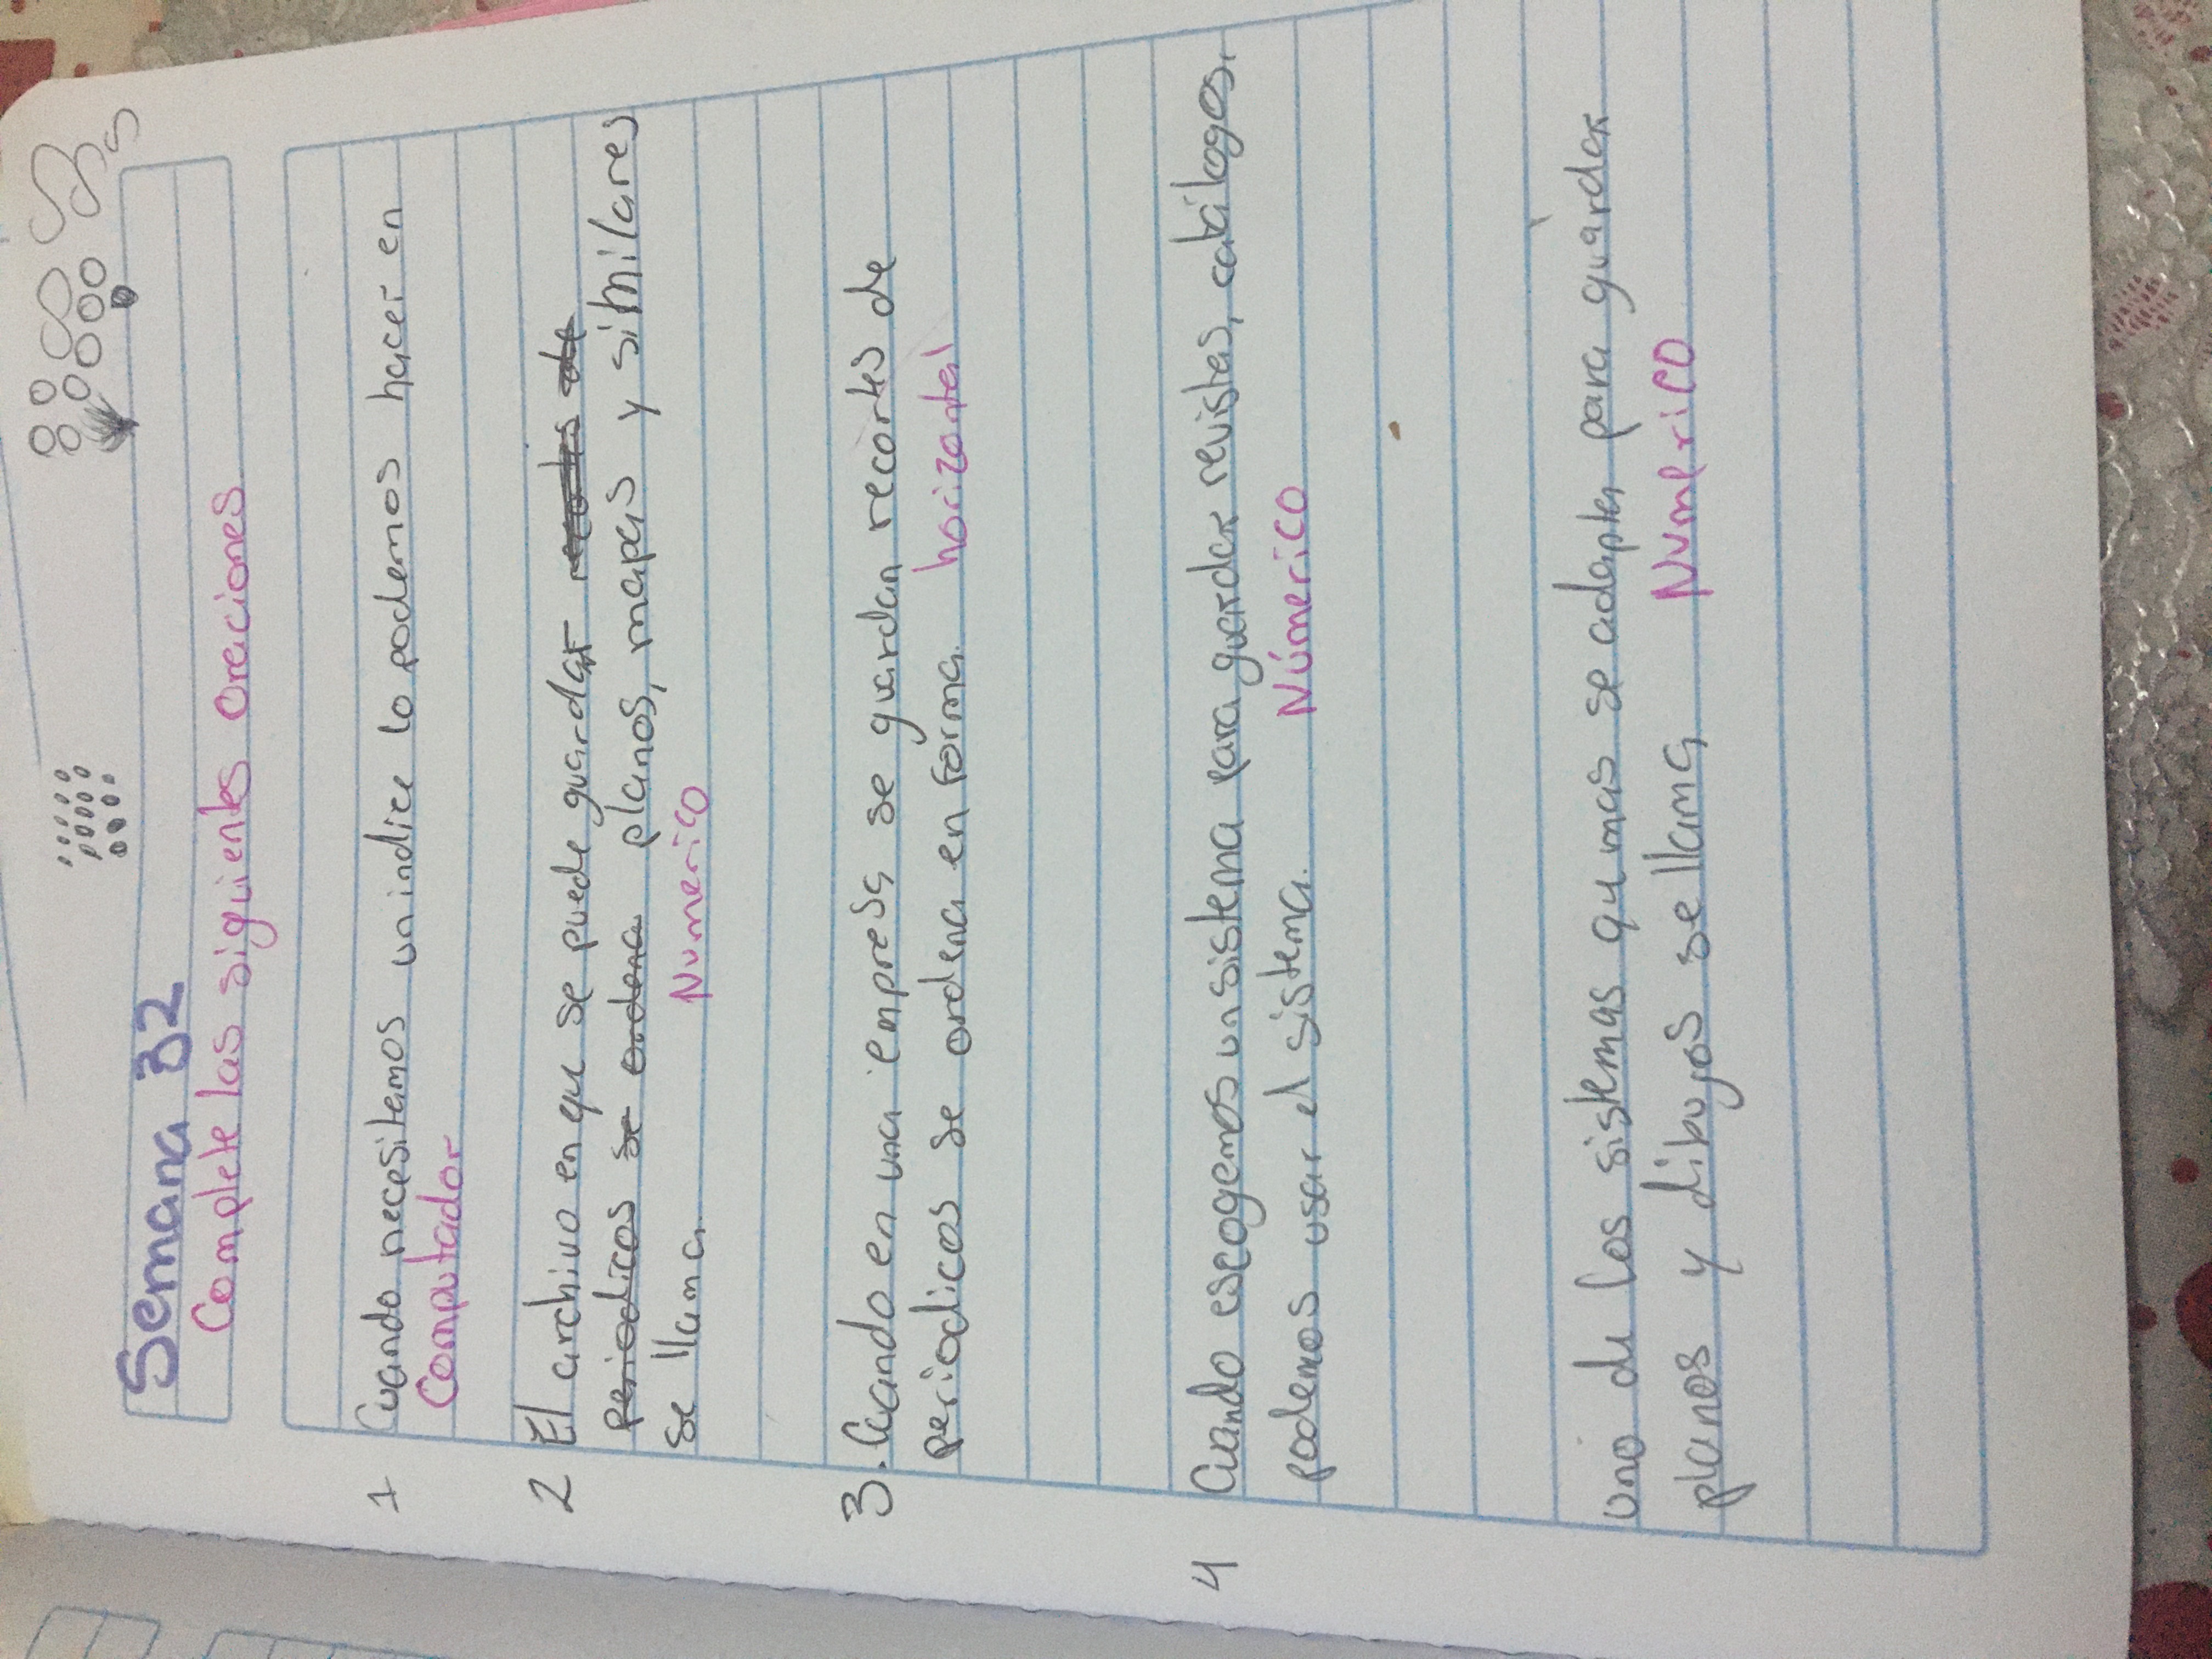 Semana 32
Complete las siguientes oraciones
1 Cuando necesitamos un indice lo podemos hacer en
Computador
2 El archivo en que se puede guardar recortes de
periodicos se ordena planos, mapas y similares
se llama Numerico
3. Cuando en una empresa se guardan recortes de
periodicos se ordena en forma horizontal
4 Cuando escogemos un sistema para guardar revistas, catálogos,
podemos usar el sistema. Númerico
uno de los sistemas que mas se adapta para guardar
planos y dibujos se llama Numerico